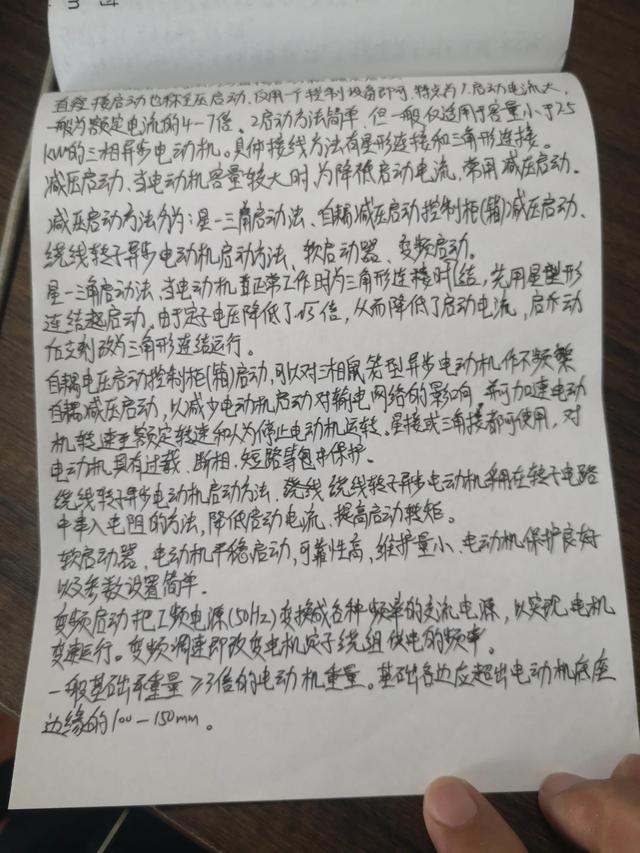 直接接启动也称全压启动.仅用一个控制设备即可.特点为1.启动电流大,
一般为额定电流的4-7倍。2启动方法简单.但一般仅适用于容量小于7.5
KW的三相异步电动机。具体接线方法有星形连接和三角形连接。
减压启动、当电动机容量较大时,为降低启动电流,常用减压启动.
减压启动方法分为:星-三角启动法、自耦减压启动控制柜(箱)减压启动、
绕线转子异步电动机启动方法、软启动器、变频启动。
星-三角启动法、当电动机在正常工作时为三角形连接时结,先用星型形
连结起启动,由于定子电压降低了√3倍,从而降低了启动电流,启动
方支刺改为三角形连结运行。
自耦电压启动控制柜(箱)启动,可以对三相鼠笼型异步电动机作不频繁
自耦减压启动,以减少电动机启动对输电网络的影响,并可加速电动
机转速至额定转速和人为停止电动机运转。星接或三角接都可使用,对
电动机具有过载、断相、短路等包中保护。
绕线转子异步电动机启动方法、绕线 绕线转子异步电动机采用在转子电路
中串入电阻的方法,降低启动电流、提高启动转矩。
软启动器、电动机平稳启动,可靠性高,维护量小、电动机保护良好
以及参数设置简单.
变频启动把工频电源(50Hz)变换成各种频率的交流电源,以实现电机
变速运行。变频调速即改变电机定子绕组供电的频率。
一般基础承重量≥3倍的电动机重量。基础各边应超出电动机底座
边缘的100-150mm。